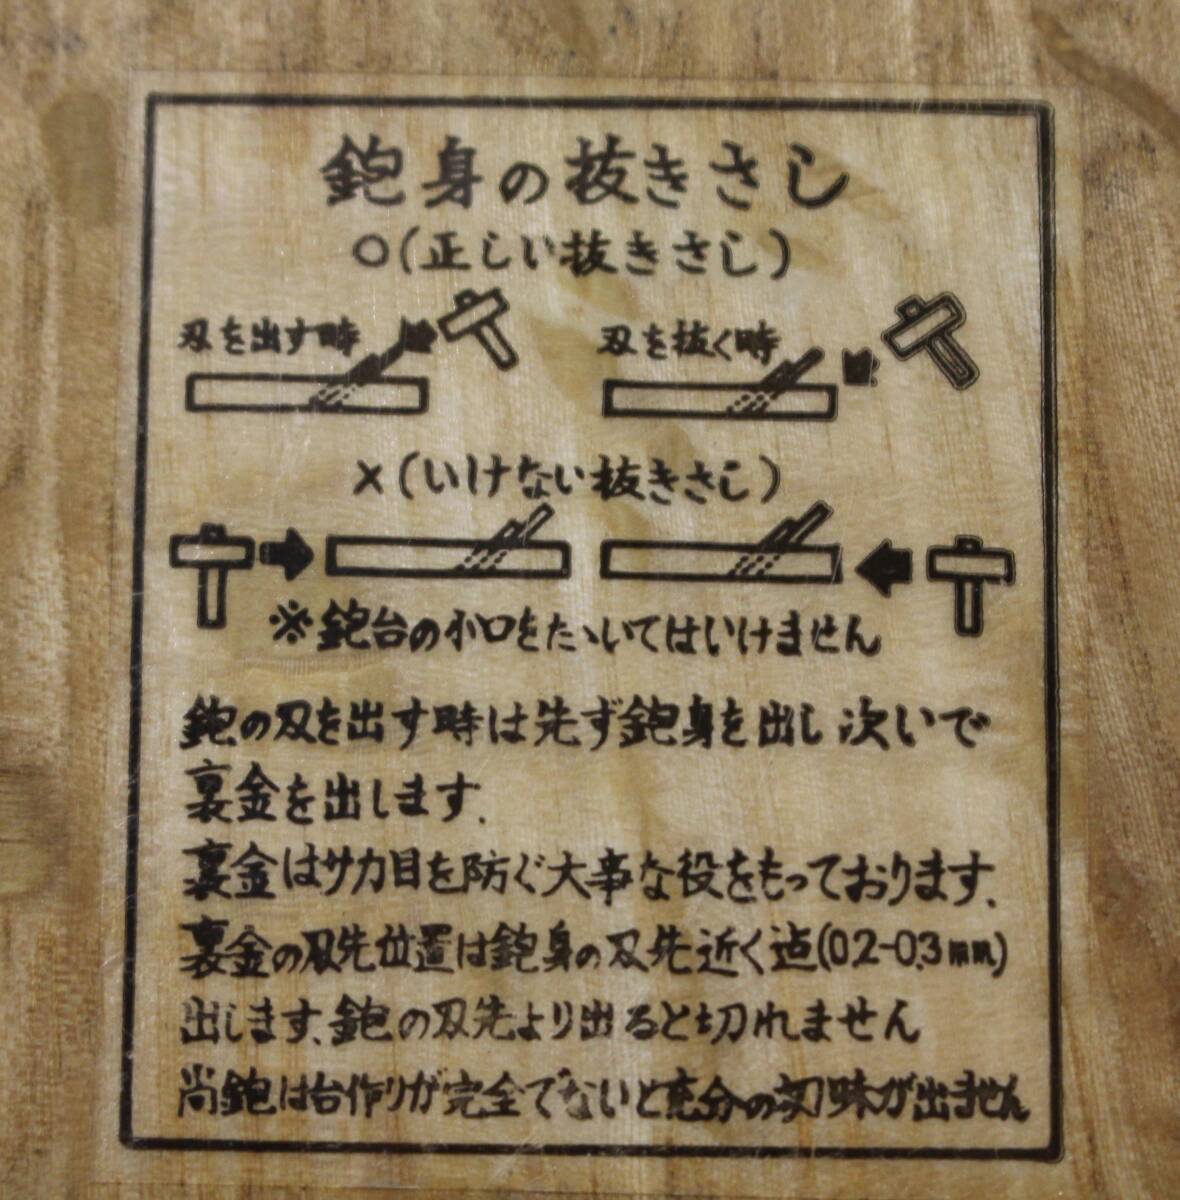 鉋身の抜きさし
○(正しい抜きさし)
刃を出す時
刃を抜く時
×(いけない抜きさし)
※鉋台の小口をたゝいてはいけません
鉋の刃を出す時は先ず鉋身を出し次いで
裏金を出します.
裏金はサカ目を防ぐ大事な役をもっております.
裏金の刃先位置は鉋身の刃先近く迠(0.2-0.3mm)
出します.鉋の刃先より出ると切れません
尚鉋は台作りが完全でないと充分の切味が出ません